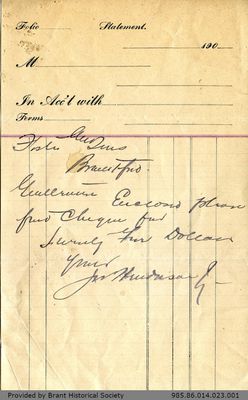 Folio Statement.
190
M
In Acc't with
Terms
Foster And Sons
Brantford
Gentlemen Enclosed please
find Cheque for
Seventy Dollars
Yours
Jas Henderson
Provided by Brant Historical Society 985.86.014.023.001